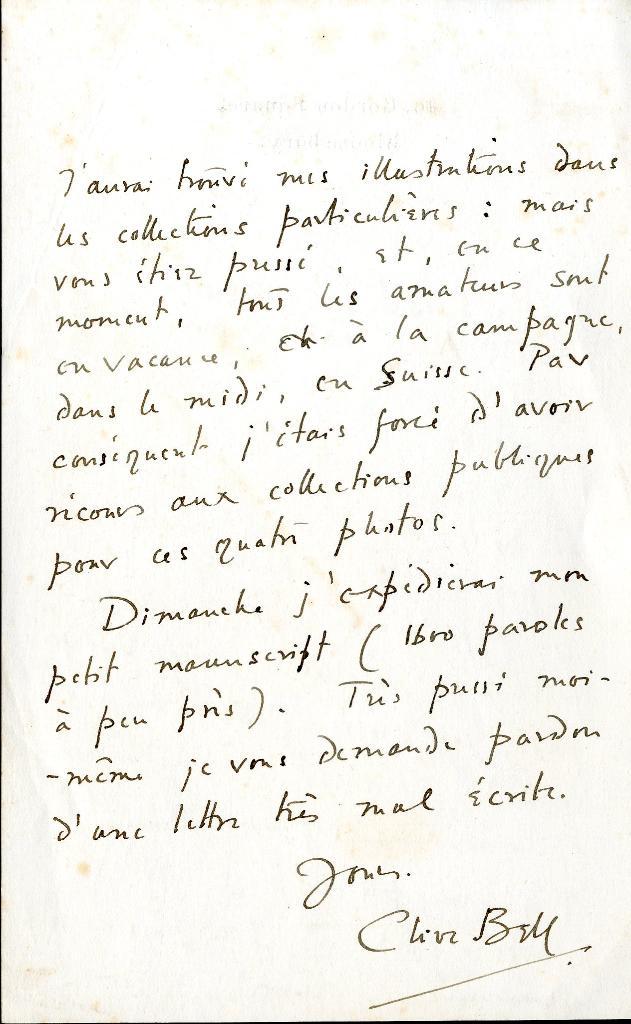 J'aurai trouvé mes illustrations dans
les collections particulières : mais
vous étiez pressé, et, en ce
moment, tous les amateurs sont
en vacance, et à la campagne,
dans le midi, en Suisse. Par
conséquent j'étais forcé d'avoir
recours aux collections publiques
pour ces quatre photos.
Dimanche j'expédierai mon
petit manuscript (1600 paroles
à peu près). Très pressé moi-
-même je vous demande pardon
d'une lettre très mal écrite.
Yours.
Clive Bell